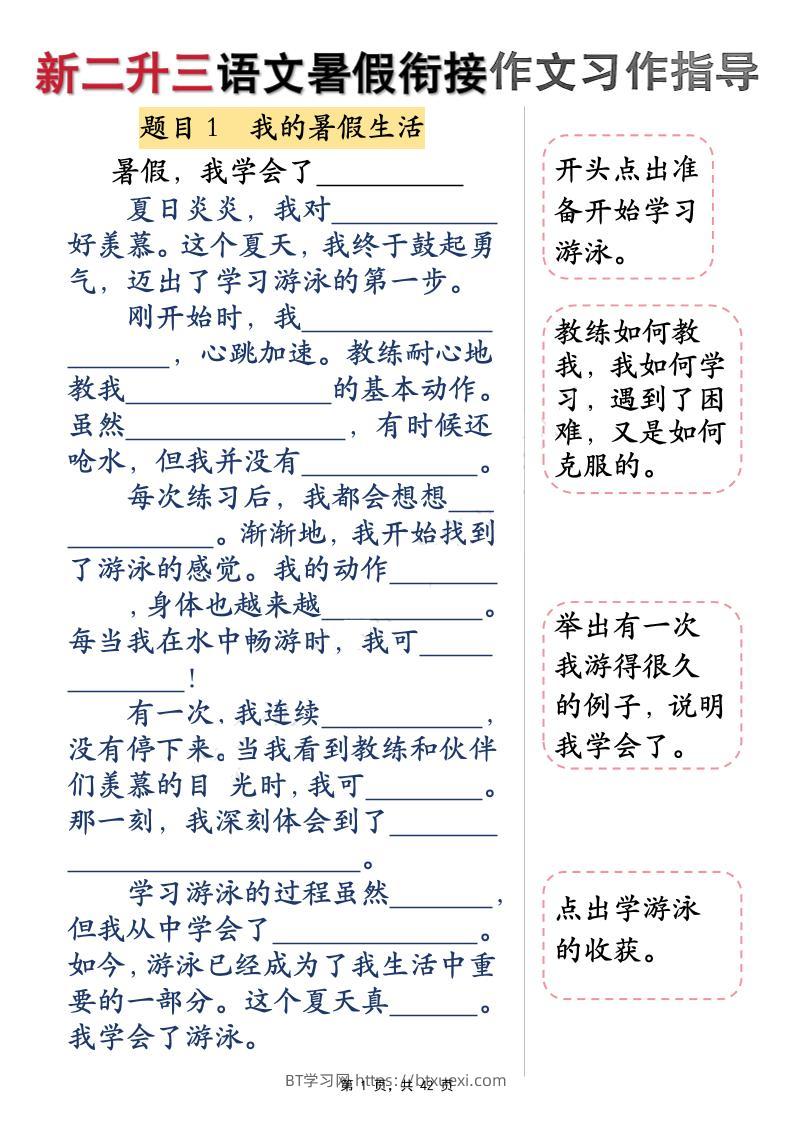 新二升三语文暑假衔接作文习作指导
题目1 我的暑假生活
暑假，我学会了__________
夏日炎炎，我对___________
好羡慕。这个夏天，我终于鼓起勇
气，迈出了学习游泳的第一步。
刚开始时，我_____________
_______，心跳加速。教练耐心地
教我______________的基本动作。
虽然_______________，有时候还
呛水，但我并没有____________。
每次练习后，我都会想想___
__________。渐渐地，我开始找到
了游泳的感觉。我的动作_______
，身体也越来越___________。
每当我在水中畅游时，我可_____
________！
有一次，我连续___________，
没有停下来。当我看到教练和伙伴
们羡慕的目 光时，我可________。
那一刻，我深刻体会到了_______
____________________。
学习游泳的过程虽然_______，
但我从中学会了______________。
如今，游泳已经成为了我生活中重
要的一部分。这个夏天真______。
我学会了游泳。
开头点出准
备开始学习
游泳。
教练如何教
我，我如何学
习，遇到了困
难，又是如何
克服的。
举出有一次
我游得很久
的例子，说明
我学会了。
点出学游泳
的收获。
BT学习网 https://btxuexi.com
第 1 页，共 42 页